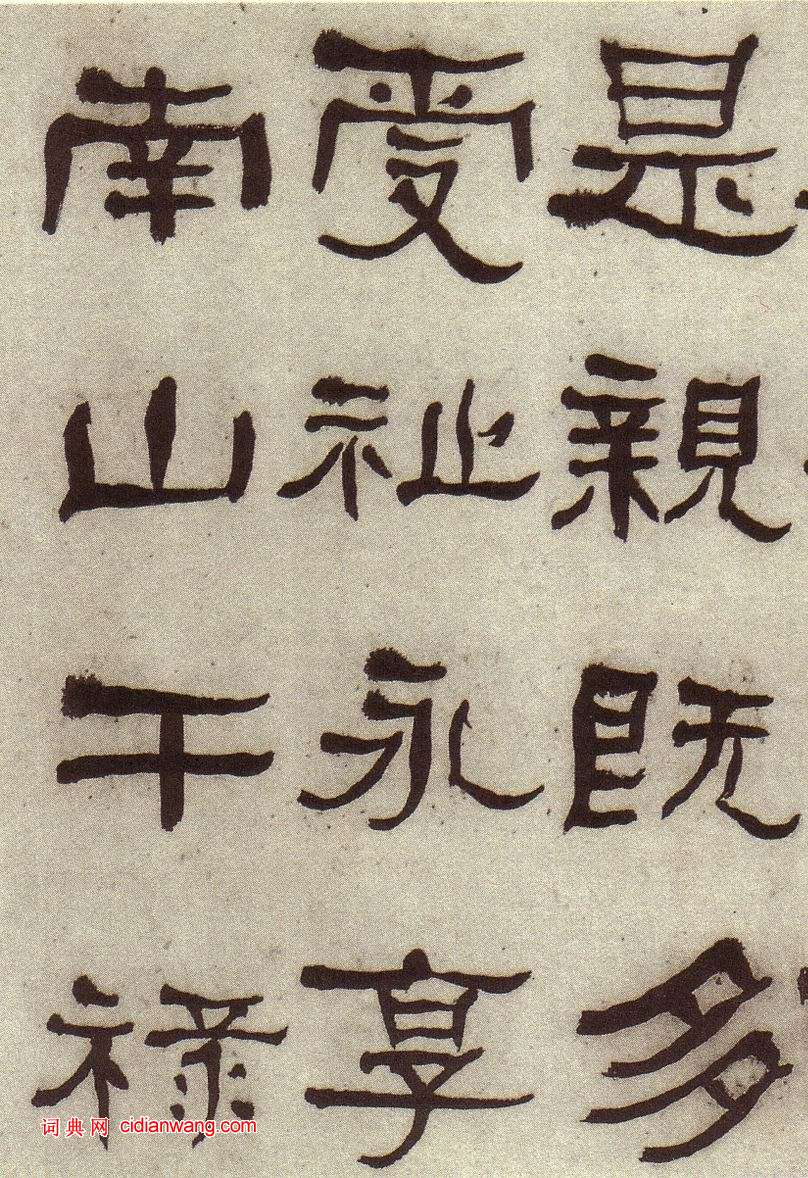 是親既多
受祉永享
南山干祿
词典网 cidianwang.com